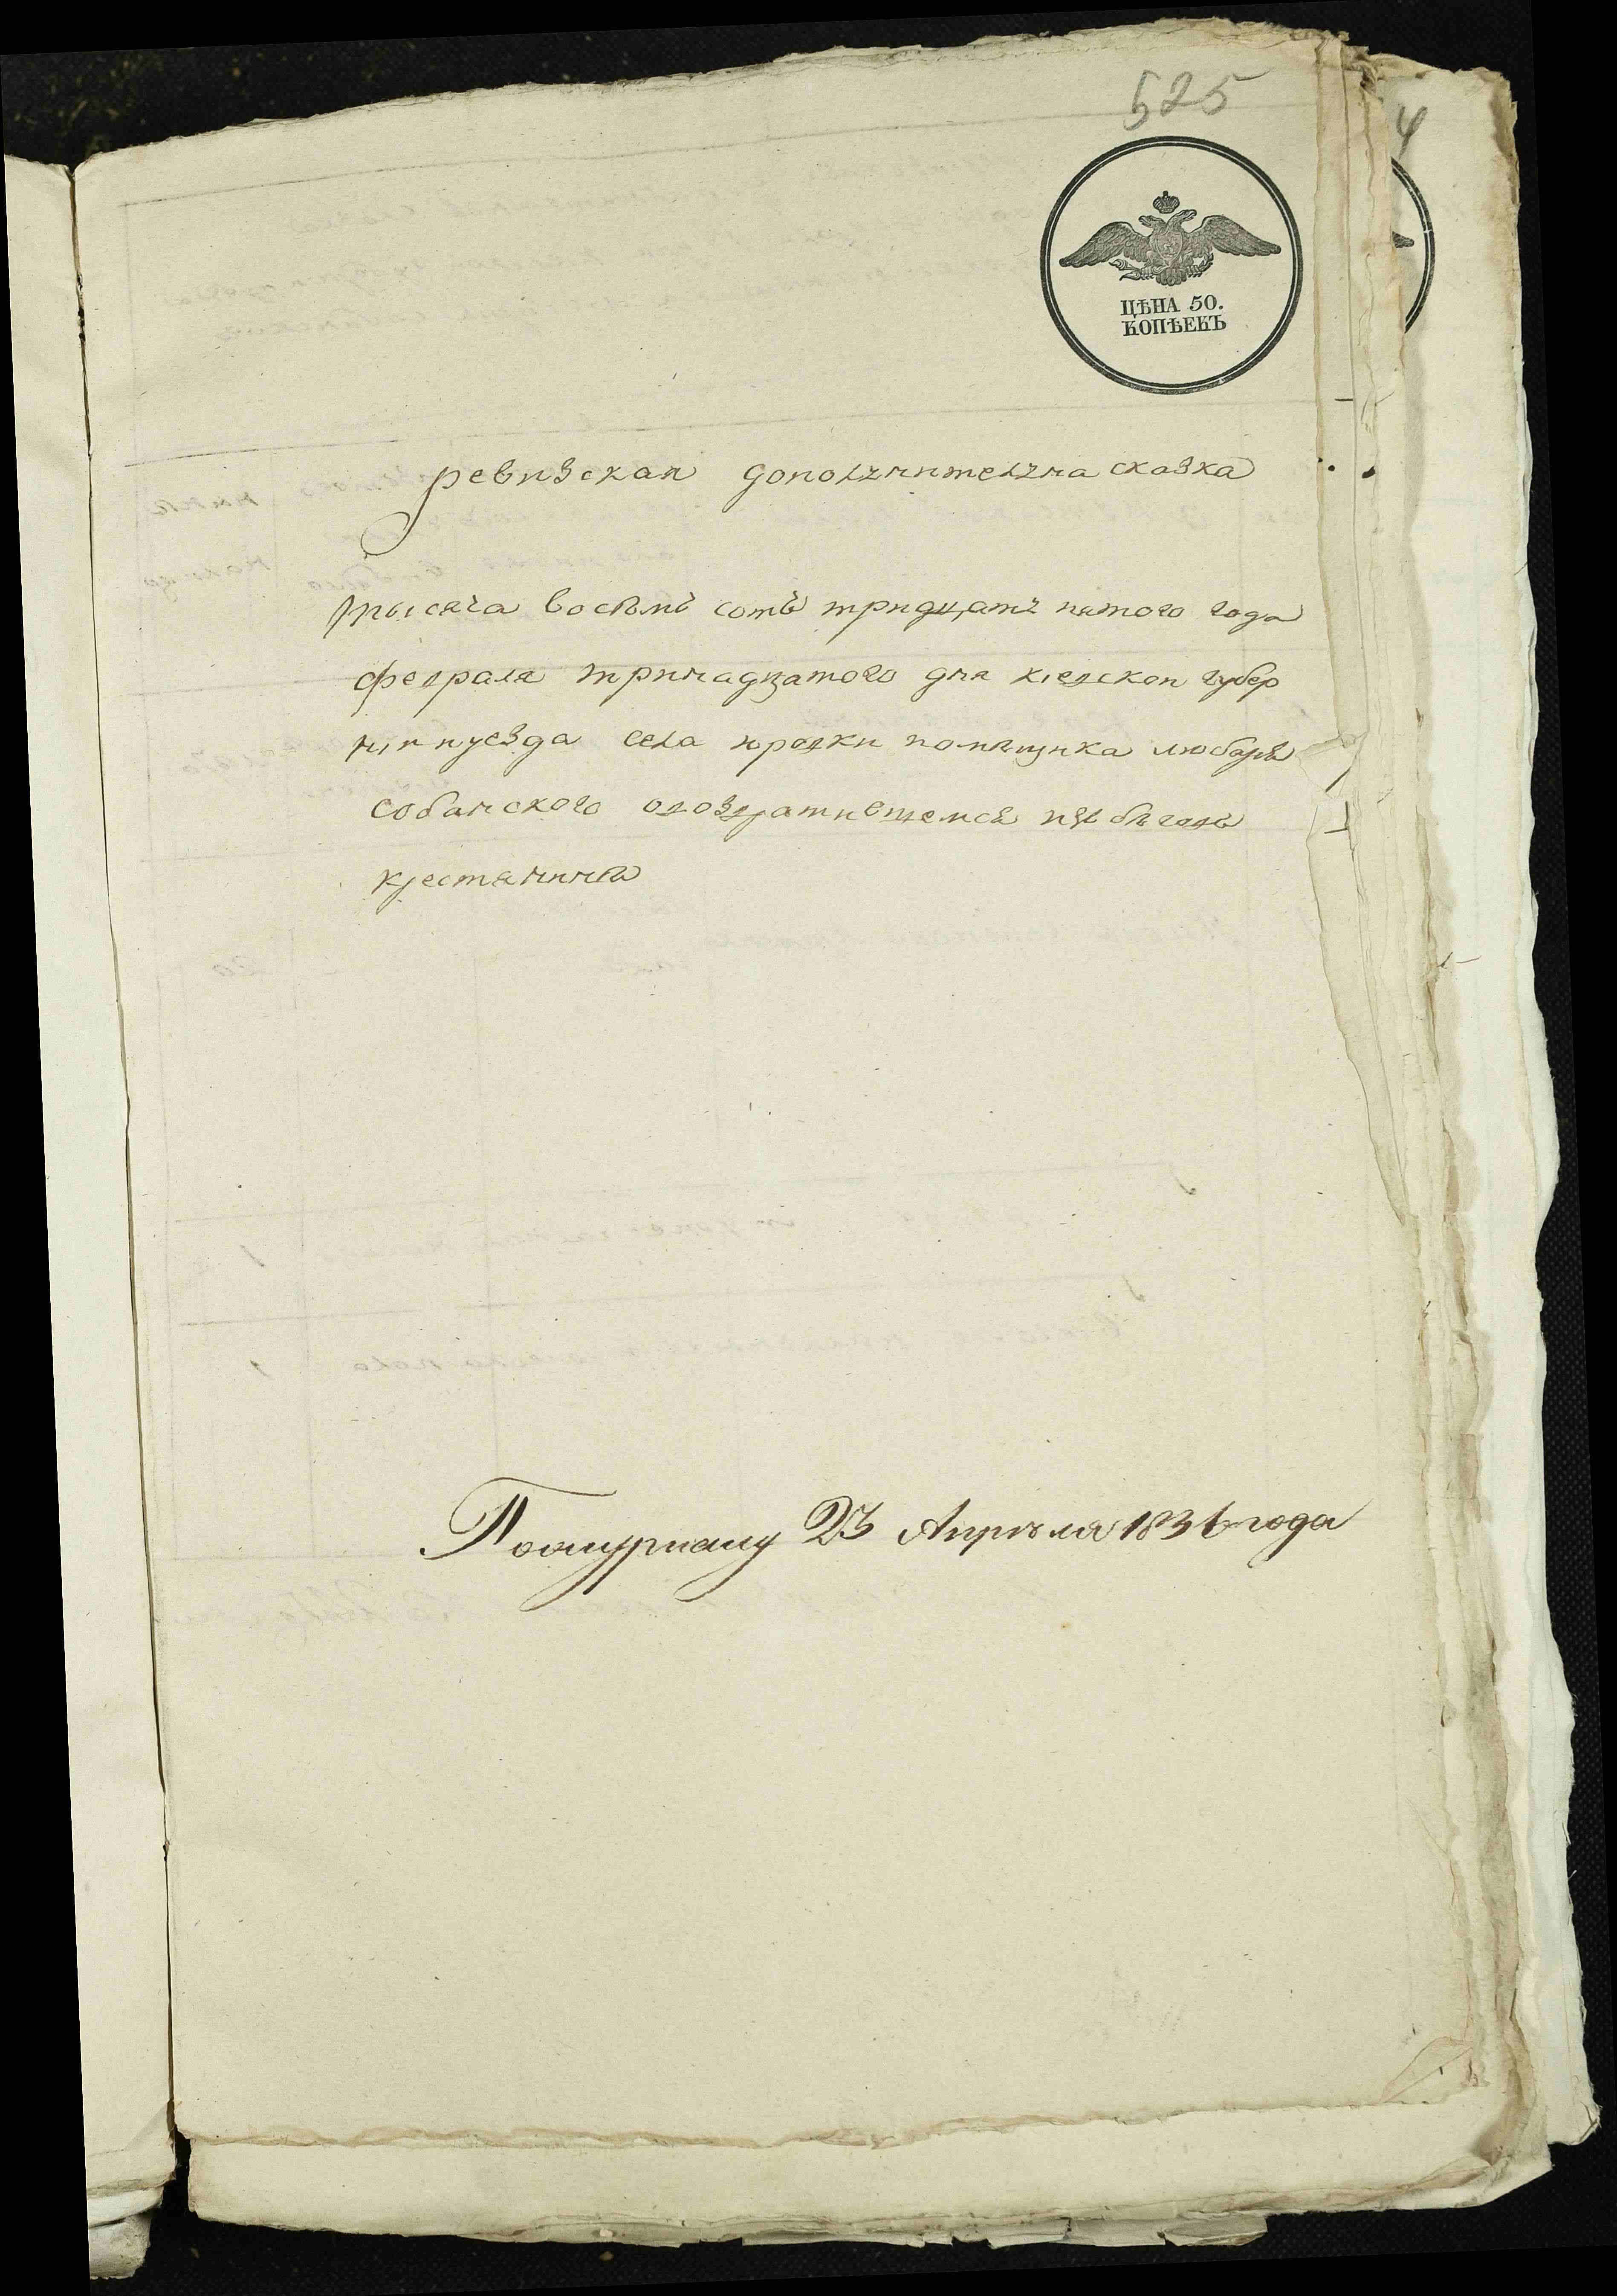 525
4
ЦѢНА 50.
КОПѢЕКЪ
ревизская дополнителна сказка
тысяча восѣмъ сотъ тридцать пятого года
февраля тринадцатого дня кіевскои губер
ніи и уезда села юровки помѣщика
собанского о возвратившемся изъ бѣговъ
крестянинѣ
23 Апрѣля 1836 года